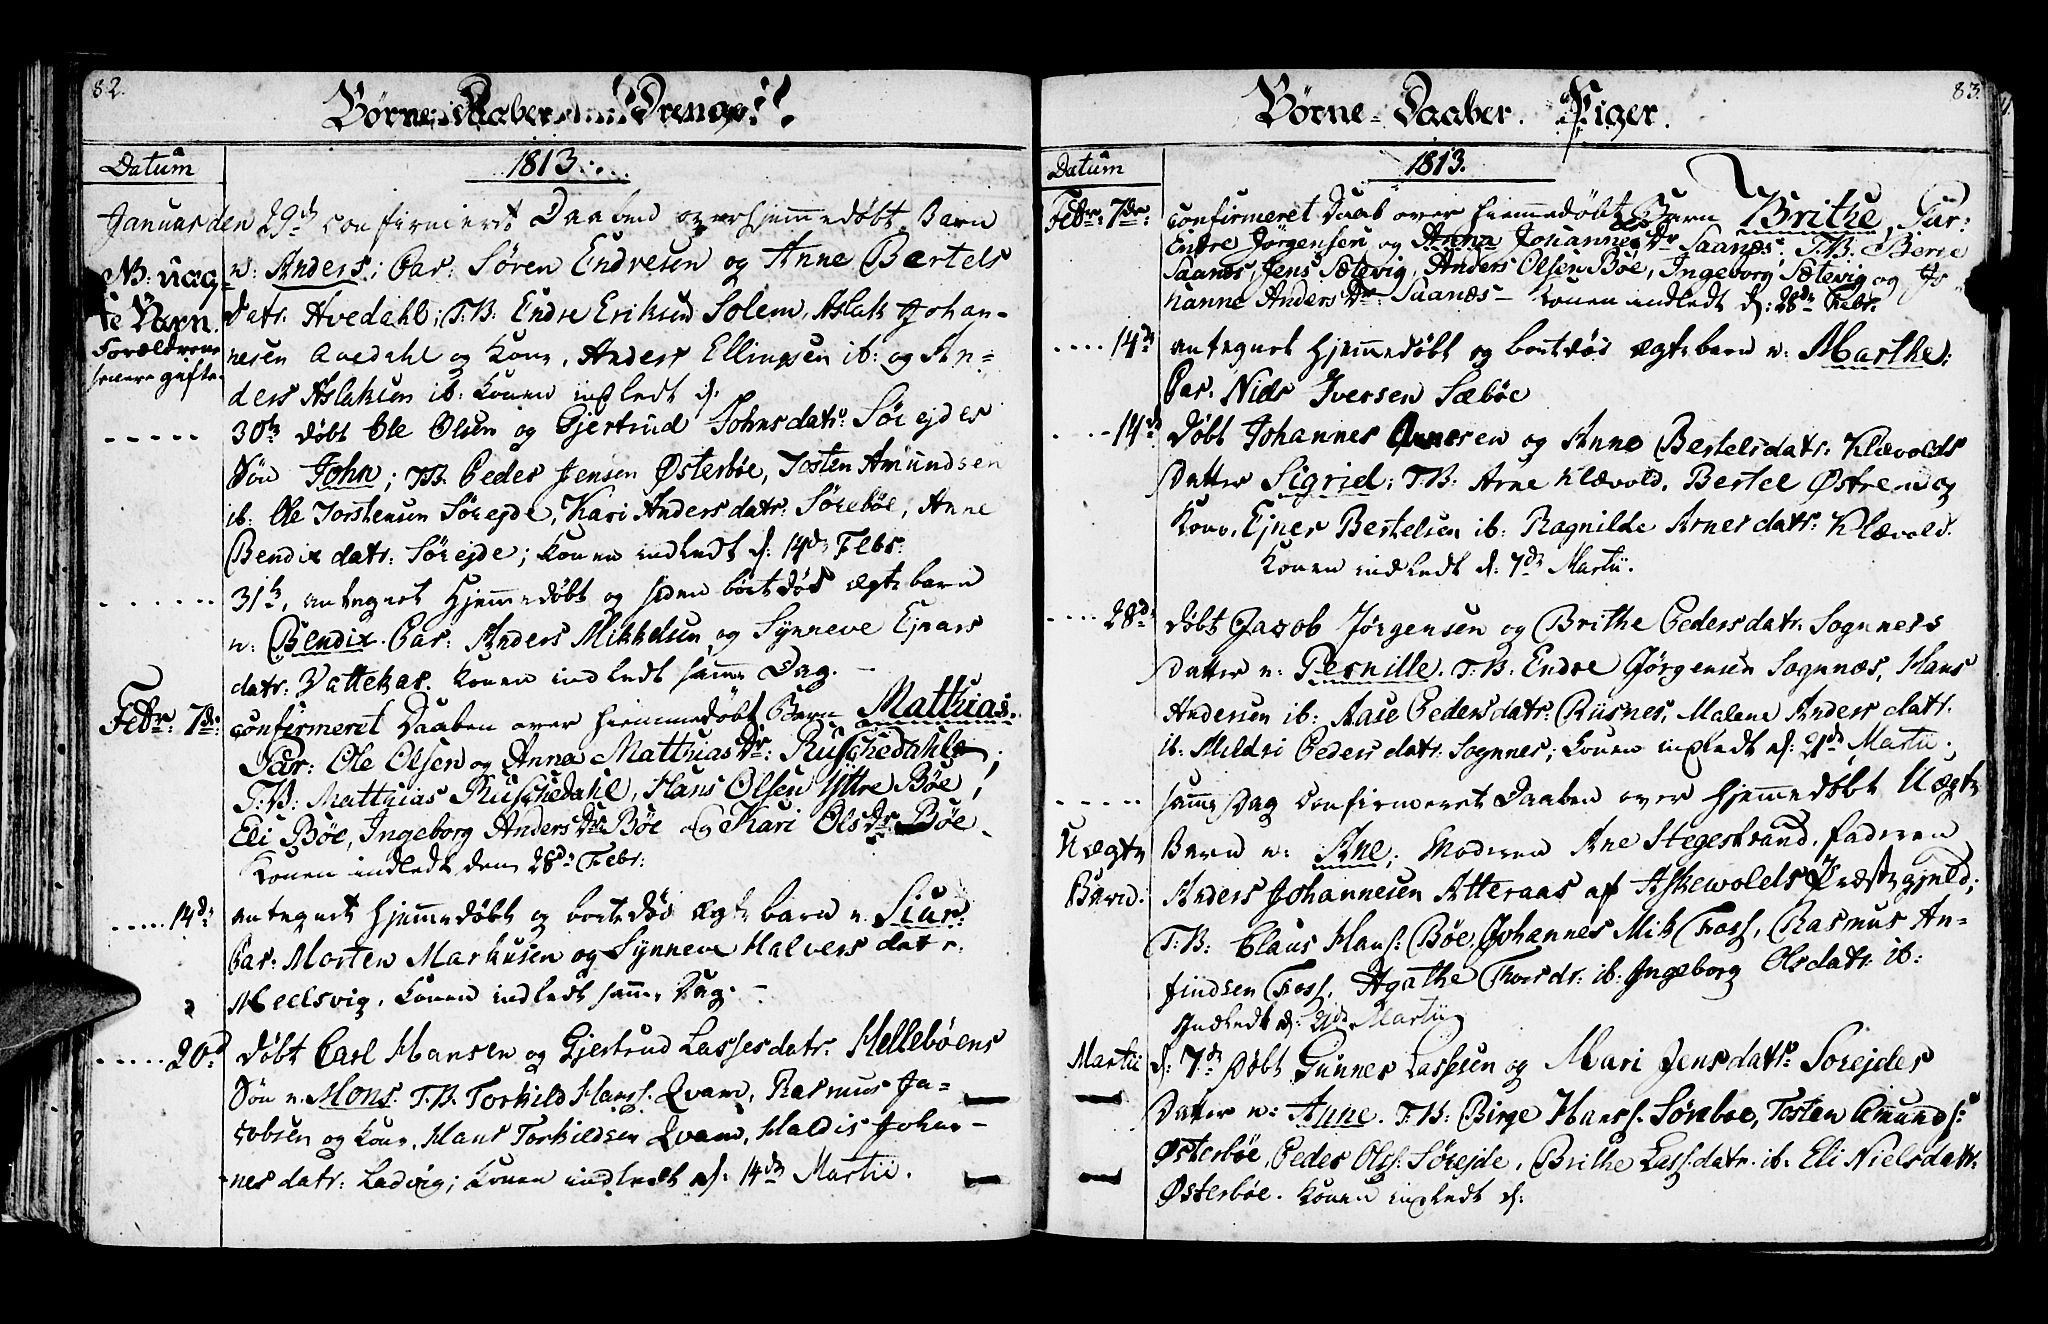 82.
Børne-Daaber Drenge
Datum
1813.
Januar den 29de confirmeret Daaben over hjemmedøbt Barn
NB: uæg-
te Barn.
Forældrene
senere gifte.
n: Anders; Par: Søren Endresen og Anne Bertels
datr. Hvedahl; T.B. Endre Eriksen Solem, Aslak Johan-
nesen Qvedahl og Kone, Anders Ellingsen ib: og An-
ders Aslaksen ib: Konen indledt d:
30te døbt Ole Olsen og Gjertrud Johnsdatr: Sørejdes
Søn John; T.B. Peder Jensen Østerbøe, Tosten Amundsen
ib: Ole Torstensen Sørejde, Kari Andersdatr: Sørebøe, Anne
Bendixdatr: Sørejde; Konen indledt d: 14de Febr:
31te, antegnet hjemmedøbt og siden bortdød ægte barn
n: Bendix. Par: Anders Mikkelsen og Synneve Ejnars
datr: Vattekar. Konen indledt samme Dag.
Febr: 7de: confirmeret Daaben over hiemmedøbt Barn Matthias.
Par: Ole Olsen og Anna Matthias Dr: Ruschedahls;
T.B: Matthias Ruschedahl, Hans Olsen Yttre Bøe,
Eli Bøe, Ingeborg Anders Dr. Bøe og Kari Ols Dr. Bøe.
Konen indledt den 28de Febr:
14de antegnet hjemmedøbt og bortdød ægte barn n. Siur.
Par: Morten Markusen og Synneve Halversdatr.
Medsvig. Konen indledt samme Dag.
20de døbt Carl Hansen og Gjertrud Lassesdatr. Hellebøens
Søn n. Mons. T.B. Torkild Hanss. Qvam, Rasmus Ja-
cobsen og Kone, Hans Torkildsen Qvam, Haldis Johan-
nesdatr: Ladvig; Konen indledt d: 14de Martii.
83.
Børne-Daaber. Piger.
Datum
1813.
Febr: 7de: confirmeret Daab over hiemmedøbt Barn Brithe, Par:
Endre Jørgensen og Anna Johannes Dr Saanæs. T.B: Berte
Saanæs, Jens Sætevig, Anders Olsen Bøe, Ingeborg Sætevig og Jo
hanne Anders Dr: Saanæs – Konen indledt d: 28de Febr.
14de antegnet hjemmedøbt og bortdød ægte barn n: Marthe:
Par. Niels Iversen Sæbøe
14de døbt Johannes Arnesen og Anne Bertelsdatr: Klævolds
Datter Sigrid; T.B: Arne Klævold, Bertel Østren og
Kone, Ejner Bertelsen ib: Ragnilde Arnesdatr: Klævold.
Konen indledt d: 7de Martii.
28de døbt Jacob Jørgensen og Brithe Pedersdatr: Sognnes
Datter n: Pernille. T.B: Endre Jørgensen Sognnæs, Hans
Andersen ib: Aase Pedersdatr: Risnes, Malene Andersdatr.
ib: Mildri Pedersdatr: Sognnes; Konen indledt d: 21de Martii.
samme Dag confirmeret Daaben over hjemmedøbt Uægte
Uægte
Barn.
Barn n: Ane; Moderen Ane Stegestrand, faderen
Anders Johannesen Atteraas af Askevolds Præstegjeld;
T:B: Claus Hans: Bøe, Johannes Mik Foss, Rasmus An-
findsen Foss, Agathe Thordr: ib: Ingeborg Olsdatr: ib:
Indledt d: 21de Martii
Martii d: 7de Døbt Gunner Lassesen og Mari Jensdatr: Sørejdes
Datter n: Anne. T.B: Birge Hanss. Sørebøe, Tosten Amunds:
Østerbøe, Peder Olss. Sørejde, Brithe Lass.datr. ib. Eli Nielsdatr.
Østerbøe. Konen indledt d: